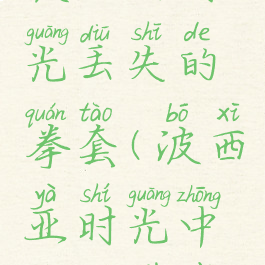 guāng diū shī de
光丢失的
quán tào bō xī
拳套(波西
yà shí guāng zhōng
亚时光中